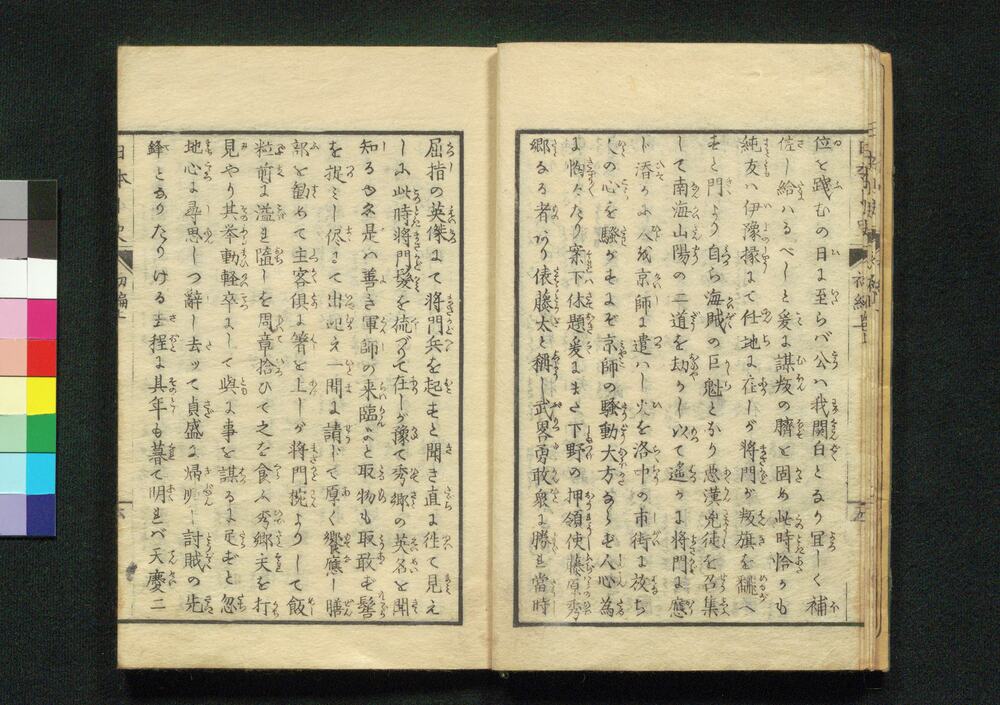 位を践むの日に至らバ公ハ我関白となり宜しく補
佐し給ハるべしと爰に謀叛の臍を固め此時恰かも
純友ハ伊豫掾にて任地に在しが将門が叛旗を翻へ
すと聞より自ら海賊の巨魁となり悪漢兇徒を召集
して南海山陽の二道を劫かし以て遥かに将門に應
じ潜かに人を京師に遣ハし火を洛中の市街に放ち
人の心を騒がせるぞ京師の騒動大方ならず人心為
に恟々たり案下休題爰にまた下野の押領使藤原秀
郷なる者あり俵藤太と稱し武畧勇敢衆に勝れ當時
屈指の英傑にて将門兵を起すと聞き直に徃て見え
しに此時将門髪を梳づりて在しが豫て秀郷の英名を聞
知るゆゑ是ハ善き軍師の来臨かと取物も取敢ず髻
を捉ミし侭にて出迎え一間に請じて厚く饗應し膳
部を勧めて主客俱に箸を上しが将門椀よりして飯
粒前に溢れ墮しを周章拾ひて之を食ふ秀郷夫を打
見やり其挙動軽卒にして與に事を謀るに足ずと忽
地心に尋思しつ辭し去ッて貞盛に帰順し討賊の先
鋒となりたりける程に其年も暮て明れバ天慶二